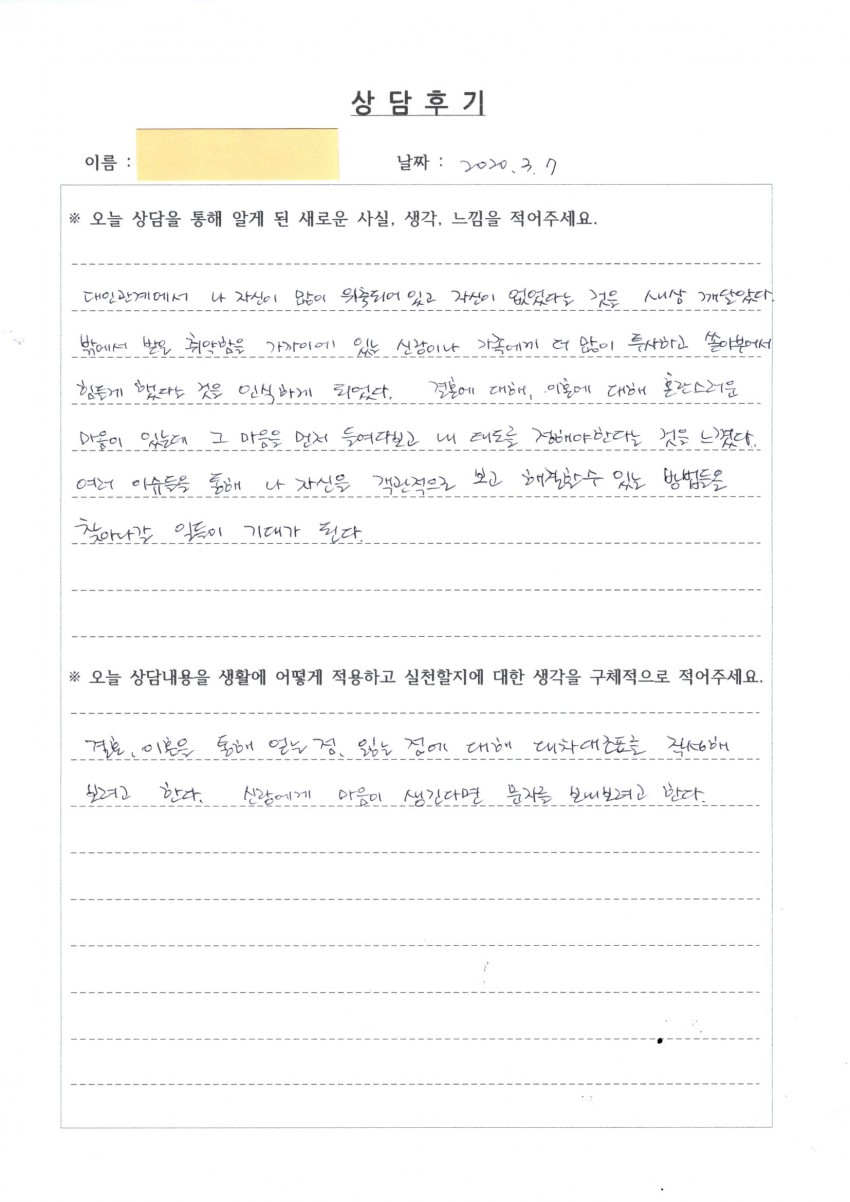 상 담 후 기
이름 : 날짜 : 2020. 3. 7
※ 오늘 상담을 통해 알게 된 새로운 사실, 생각, 느낌을 적어주세요.
대인관계에서 나 자신이 많이 위축되어 있고 자신이 없었다는 것을 새삼 깨달았다.
밖에서 받은 취약함을 가까이에 있는 신랑이나 가족에게 더 많이 투사하고 쏟아부어서
힘들게 했다는 것을 인식하게 되었다. 결혼에 대해, 이혼에 대해 혼란스러운
마음이 있는데 그 마음을 먼저 들여다보고 내 태도를 정해야한다는 것을 느꼈다.
여러 이슈들을 통해 나 자신을 객관적으로 보고 해결할수 있는 방법들을
찾아나갈 일들이 기대가 된다.
※ 오늘 상담내용을 생활에 어떻게 적용하고 실천할지에 대한 생각을 구체적으로 적어주세요.
결혼, 이혼을 통해 얻는 점, 잃는 점에 대해 대차대조표를 작성해
보려고 한다. 신랑에게 마음이 생긴다면 문자를 보내보려고 한다.